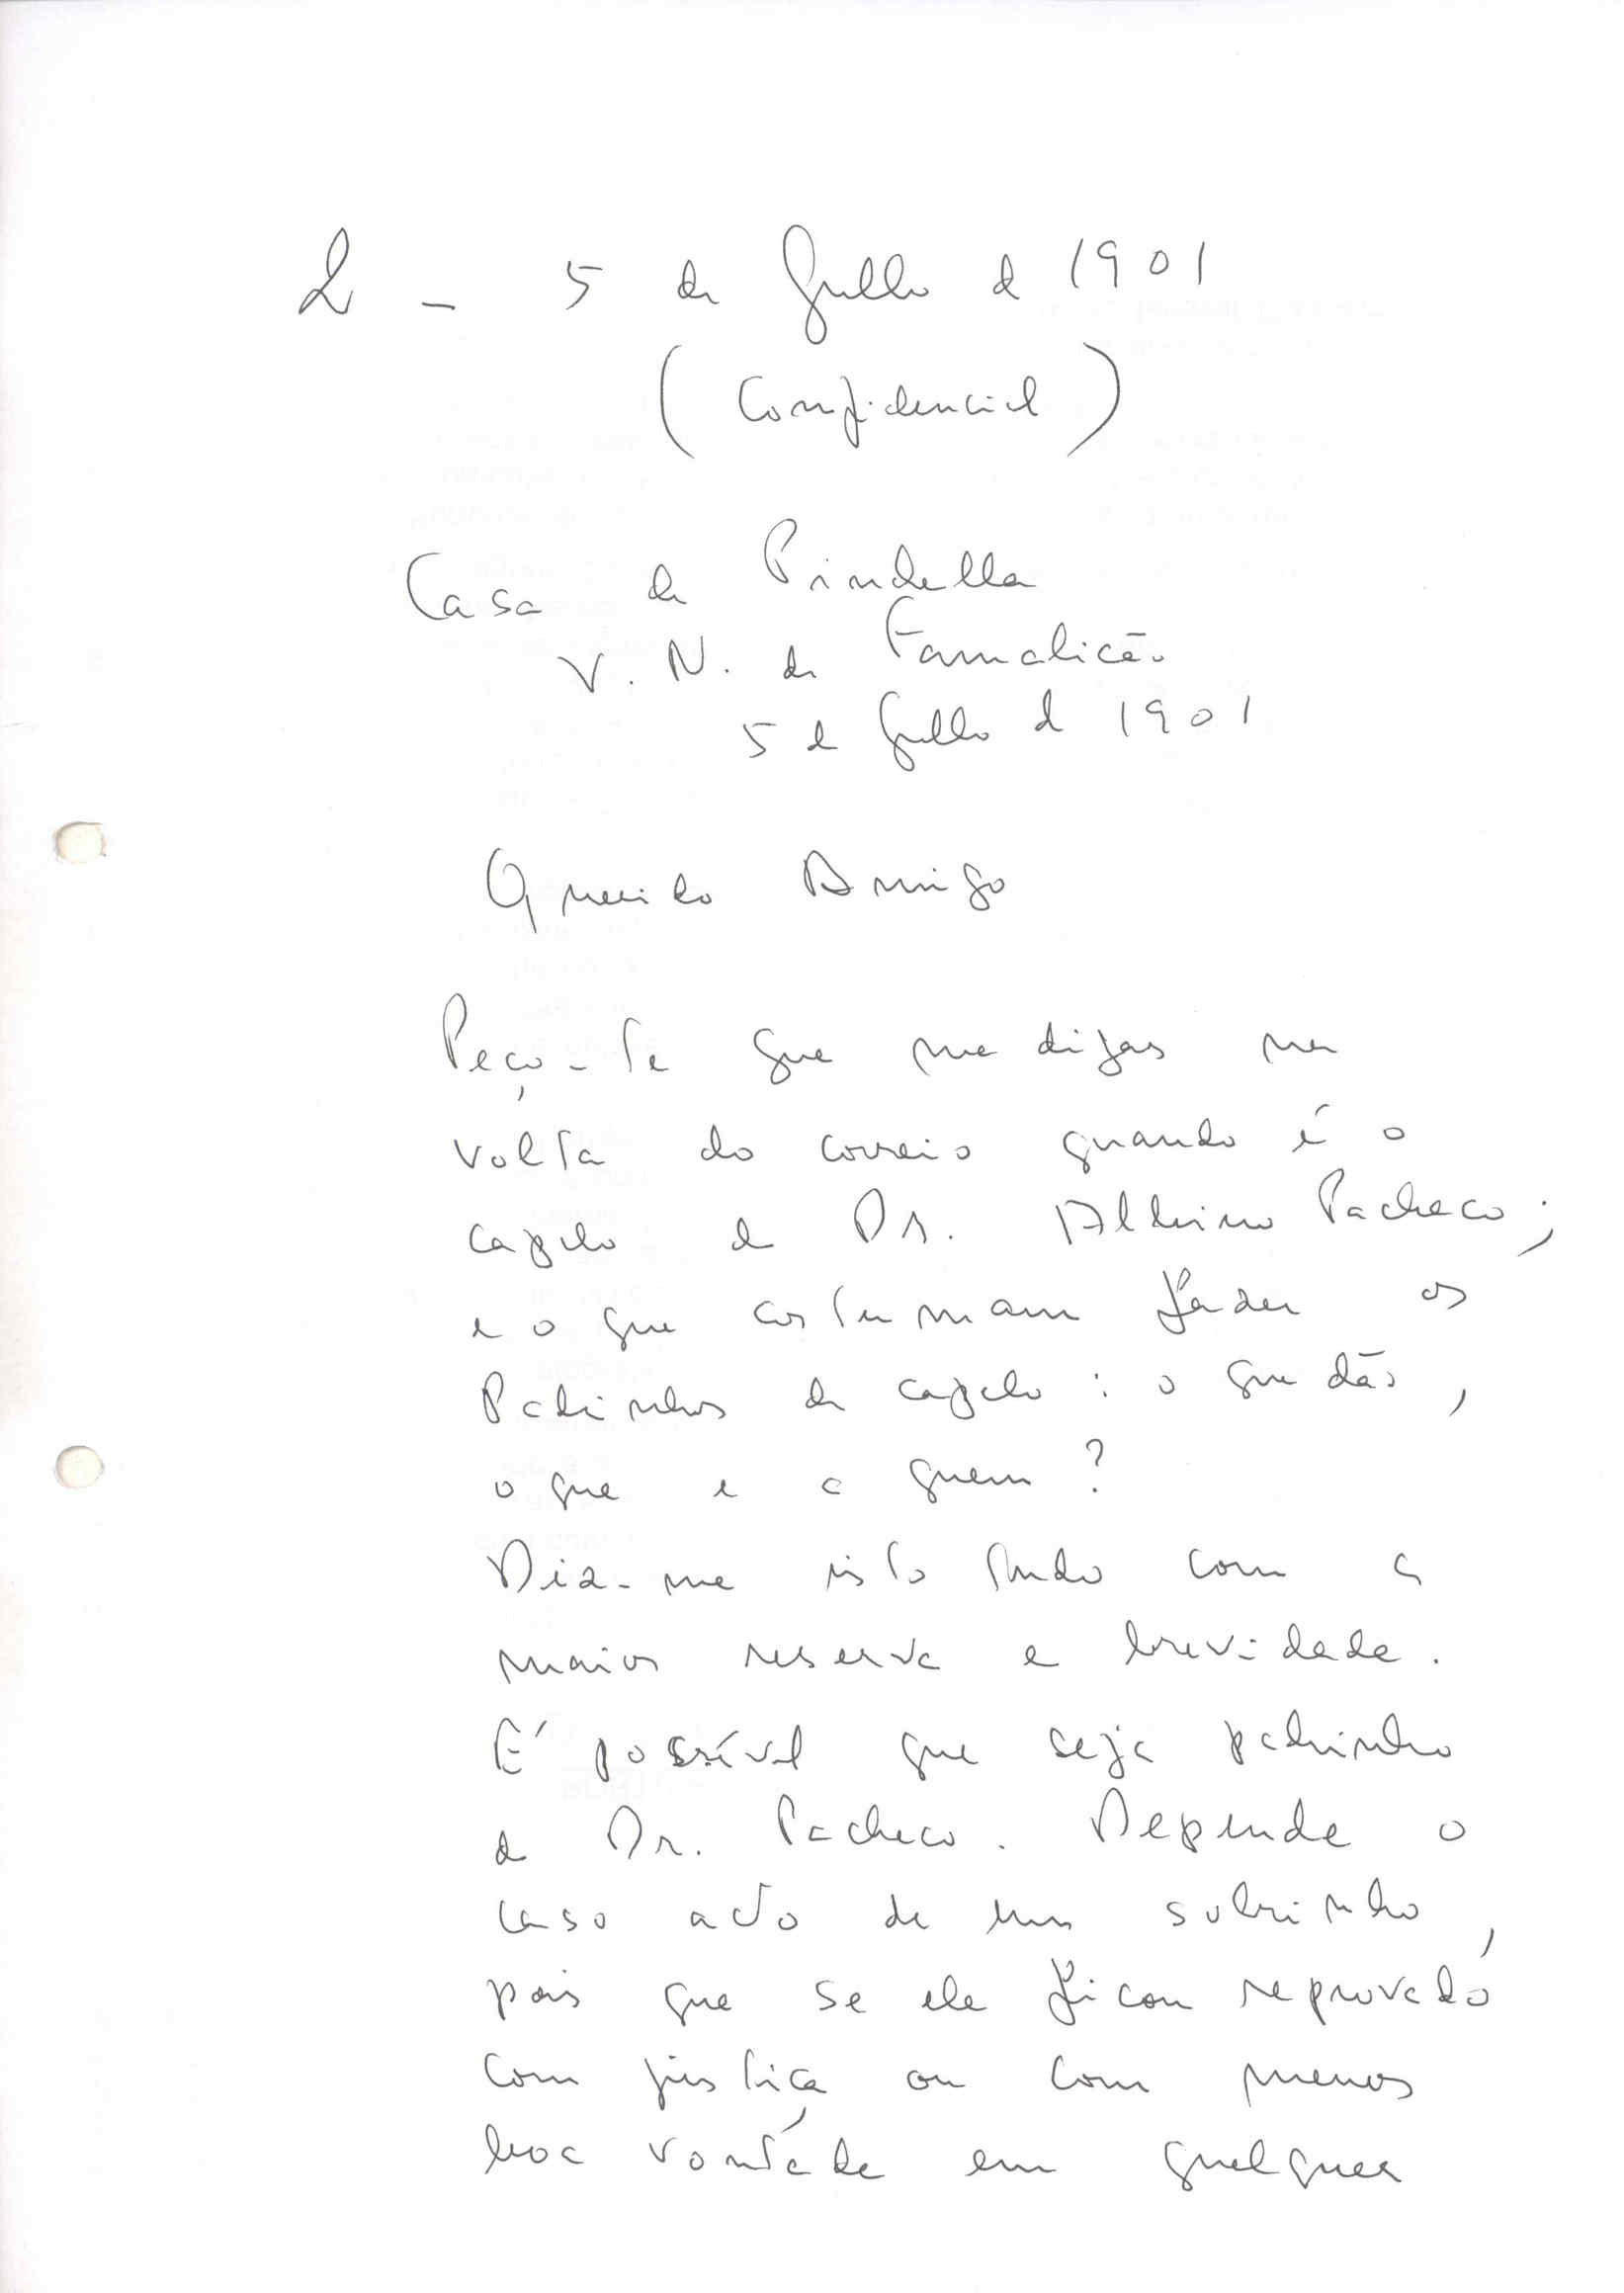 2 - 5 de Julho de 1901
(Confidencial)
Casa de Pindella
V. N. de Famalicão
5 de Julho de 1901
Querido Amigo
Peço-te que me digas na
volta do correio quando é o
capelo de Dr. Albino Pacheco;
e o que costumam fazer os
Padrinhos de capelo : o que dão,
o que e a quem?
Diz-me isto tudo com a
maior reserva e brevidade.
É possível que seja padrinho
de Dr. Pacheco. Depende o
caso acto de um sobrinho,
pois que se ele ficou reprovado
com justiça ou com menos
boa vontade em qualquer